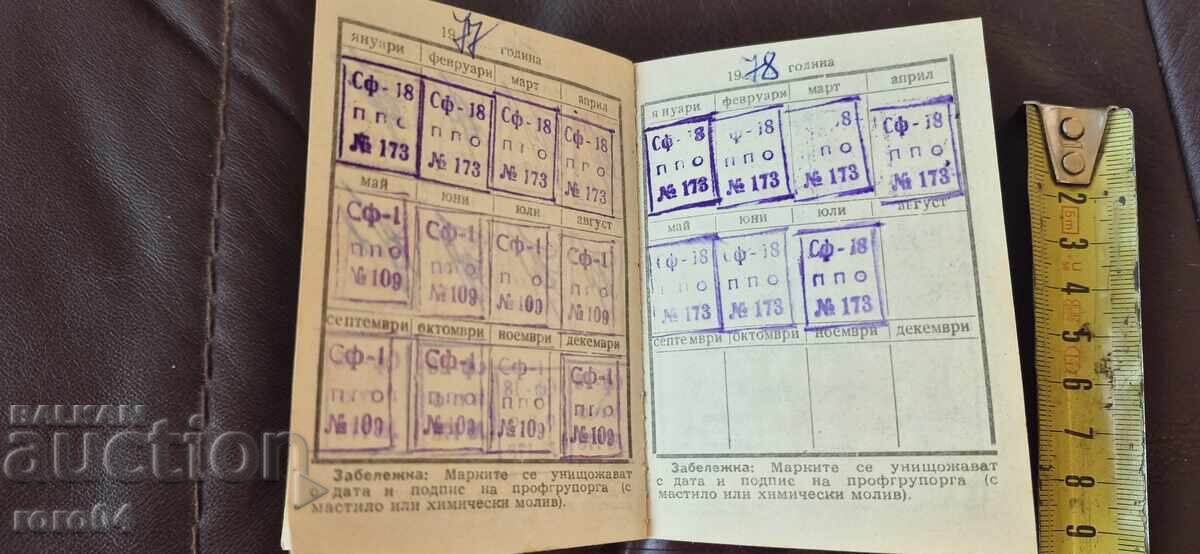 1977 година
януари февруари март април
Сф-18 Сф-18 Сф-18 Сф-18
ппо ппо ппо ппо
№ 173 № 173 № 173 № 173
май юни юли август
Сф-1 Сф-1 Сф-1 Сф-1
ппо ппо ппо ппо
№ 109 № 109 № 109 № 109
септември октомври ноември декември
Сф-1 Сф-1 Сф-1
ппо ппо ппо ппо
№ 109 № 109 № 109 № 109
Забележка: Марките се унищожават
с дата и подпис на профгрупорга (с
мастило или химически молив).
1978 година
януари февруари март април
Сф-18 ф-18 18 Сф-18
ппо ппо ппо ппо
№ 173 № 173 № 173 № 173
май юни юли август
Сф-18 ф-18 Сф-18
ппо ппо ппо
№ 173 № 173 № 173
септември октомври ноември декември
Забележка: Марките се унищожават
с дата и подпис на профгрупорга (с
мастило или химически молив).
2
5m
3
4
5
6
7
8
9
БАЛКАН
auction
roro64